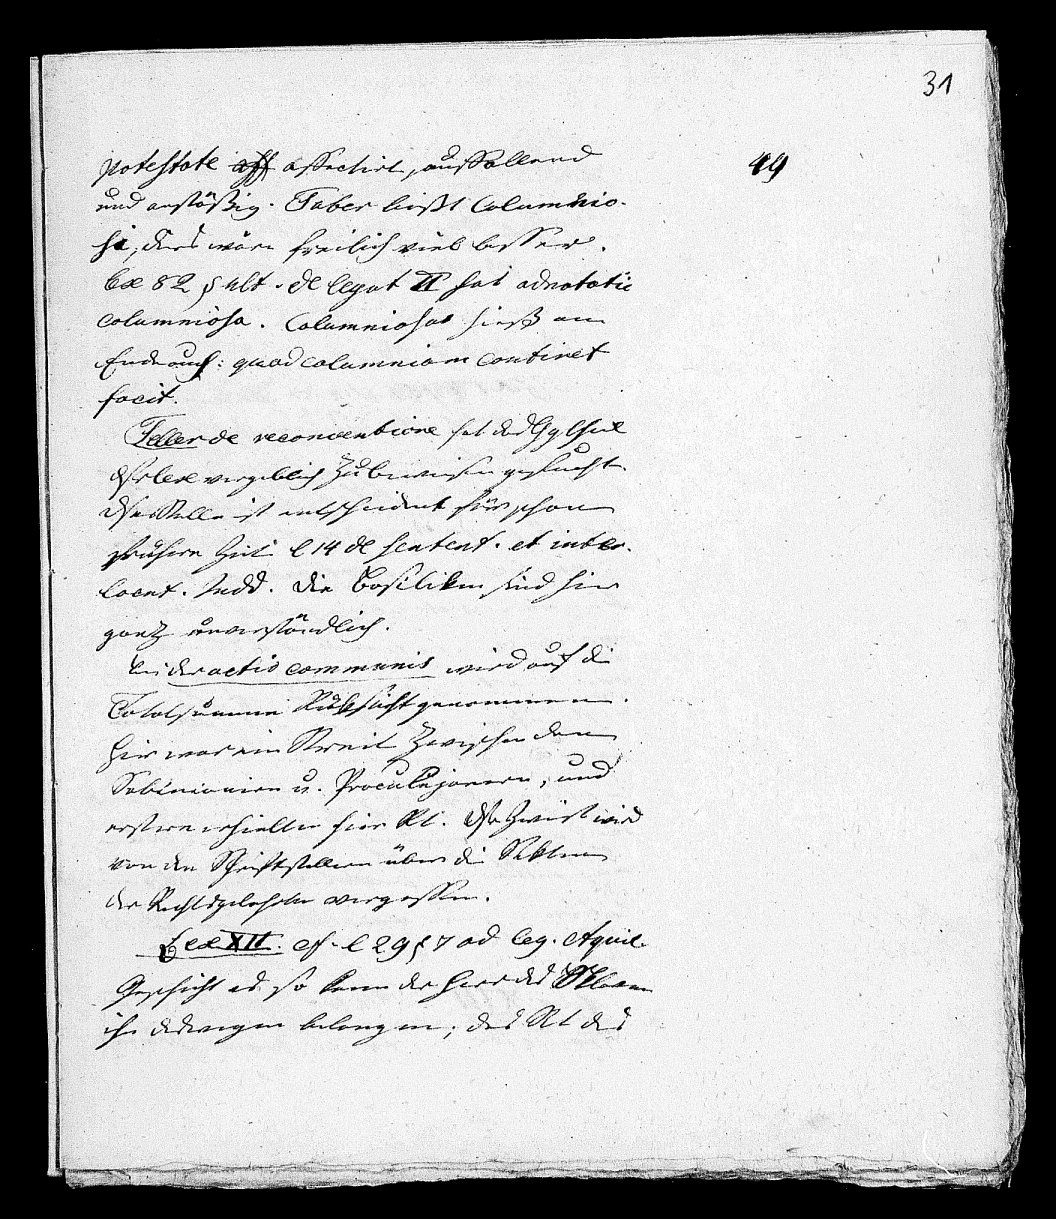 31
49
potestate aff affectirt, auffallend
und anstößig. Faber ließt Calumnio-
si, dies wäre freilich viel besser.
Lex 82 § ult. de legat II hat adnotatio
calumniosa. Calumniosus hieß am
Ende auch: quod calumniam continet
facit.
Feller de reconventione hat das
vergeblich zu beweisen gesucht.
Stelle ist entscheidend für schon
frühere Zeit l 14 de sentent. et inter-
locut. Judd. Die Basiliken sind hier
ganz unverständlich.
Bei der actio communis wird auf die
Totalsumme Rücksicht genommen.
Hier war ein Streit zwischen den
Sabinianern u. Proculejanern, und
erstere erhielten hier Rt. Dser Zwist wird
von den Schriftstellern über die Sekten
der Rechtsgelehrten vergessen.
Lex XII. cf. l 29 § 7 ad leg. Aquil.
Geschieht es so kann der Herr des Sklaven
ihn deswegen belangen; das Rt des